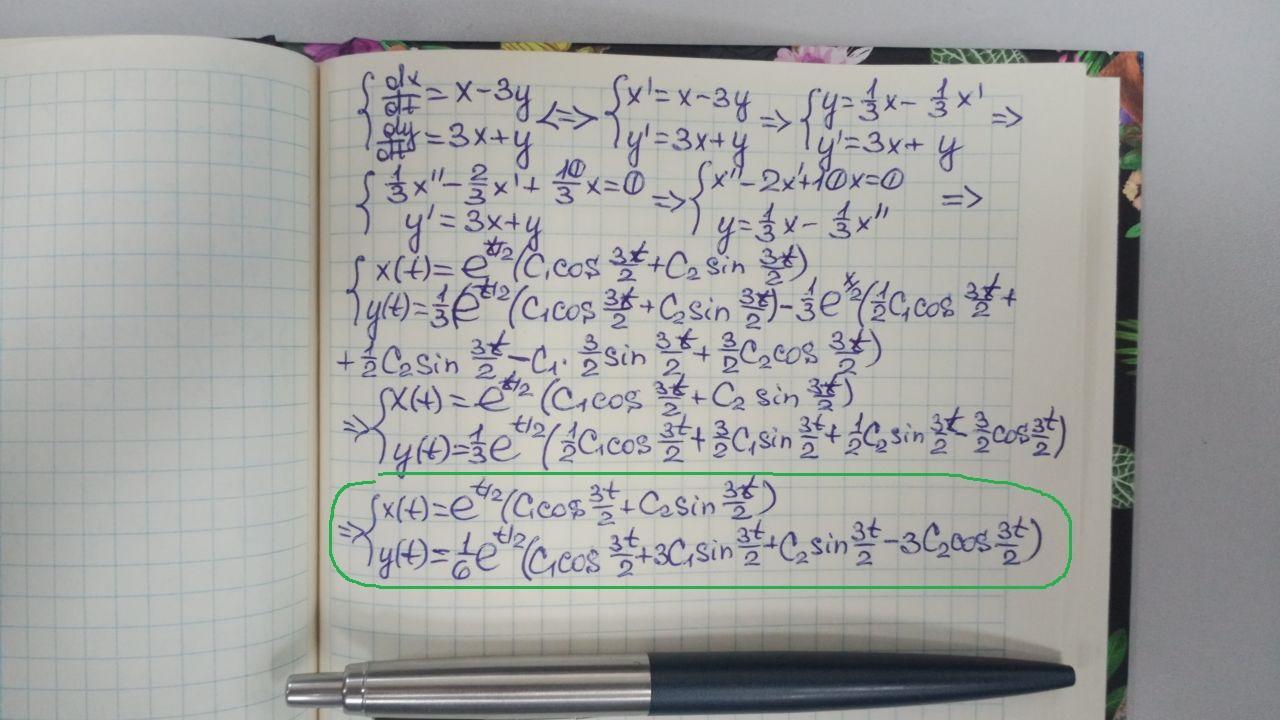 { dx/dt = x - 3y, dy/dt = 3x + y <=> { x' = x - 3y, y' = 3x + y => { y = 1/3 x - 1/3 x', y' = 3x + y =>
{ 1/3 x'' - 2/3 x' + 10/3 x = 0, y' = 3x + y => { x'' - 2x' + 10x = 0, y = 1/3 x - 1/3 x'' =>
{ x(t) = e^{t/2} (C₁ cos 3t/2 + C₂ sin 3t/2)
y(t) = 1/3 (e^{t/2} (C₁ cos 3t/2 + C₂ sin 3t/2) - 1/3 e^{x/2} (1/2 C₁ cos 3t/2 +
+ 1/2 C₂ sin 3t/2 - C₁ · 3/2 sin 3t/2 + 3/2 C₂ cos 3t/2)
=> { x(t) = e^{t/2} (C₁ cos 3t/2 + C₂ sin 3t/2)
y(t) = 1/3 e^{t/2} (1/2 C₁ cos 3t/2 + 3/2 C₁ sin 3t/2 + 1/2 C₂ sin 3t/2 - 3/2 cos 3t/2)
=> { x(t) = e^{t/2} (C₁ cos 3t/2 + C₂ sin 3t/2)
y(t) = 1/6 e^{t/2} (C₁ cos 3t/2 + 3C₁ sin 3t/2 + C₂ sin 3t/2 - 3C₂ cos 3t/2)